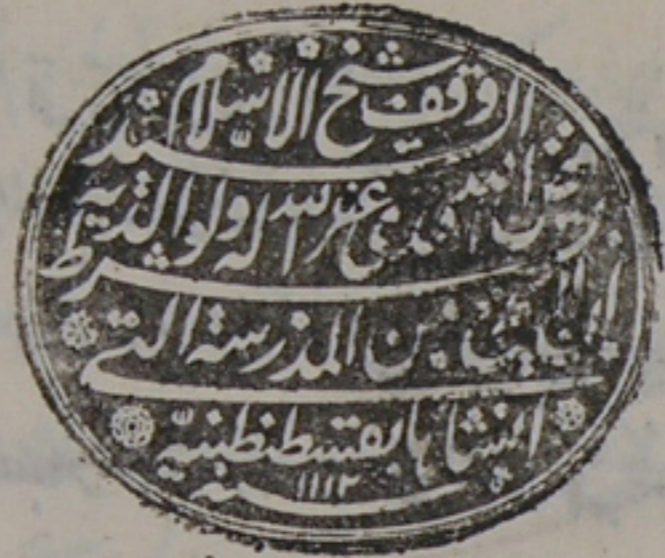 وقف شيخ الاسلام السيد
فيض الله افندي غفر الله له ولوالديه بشرط
ان لا يخرج من المدرسة التي
انشاها بقسطنطنيه
سنه ١١١٢